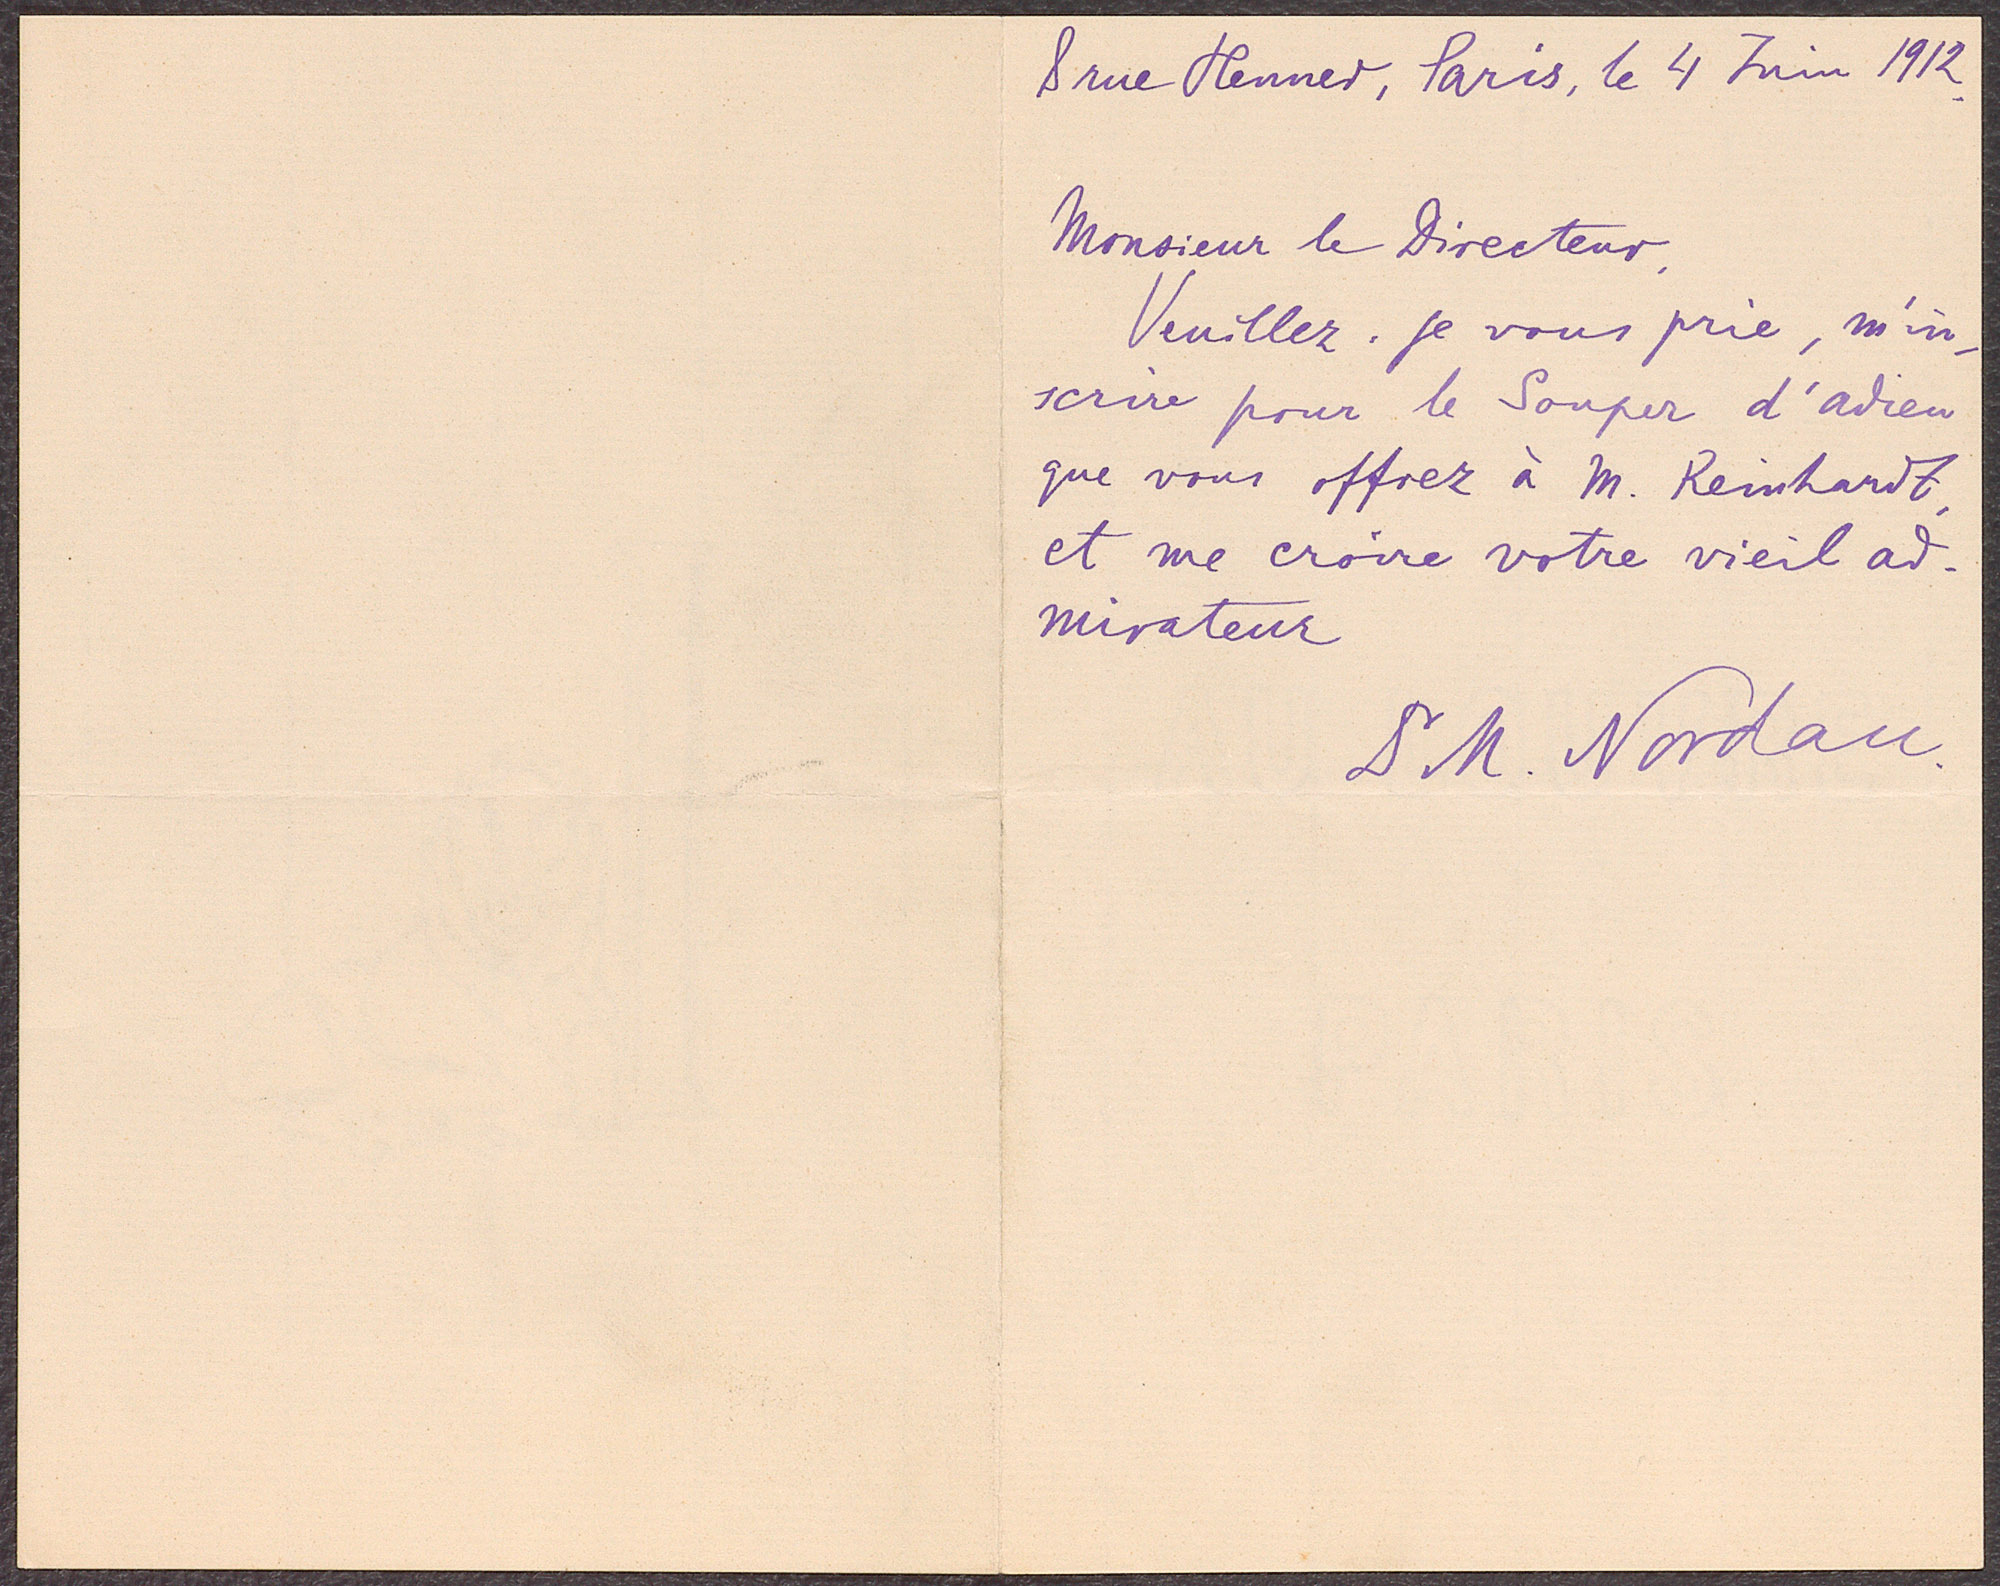 8 rue Henner, Paris, le 4 Juin 1912.
Monsieur le Directeur,
Veuillez, je vous prie, m'in-
scrire pour le Souper d'adieu
que vous offrez à M. Reinhardt,
et me croire votre vieil ad-
mirateur
Dr M. Nordau.